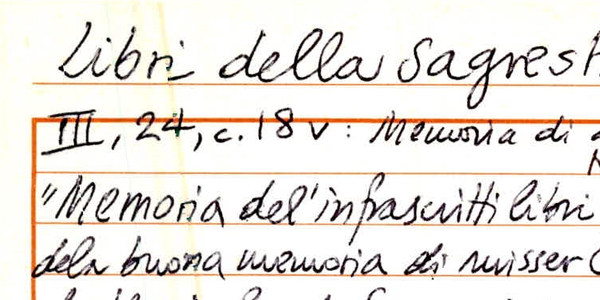 Libri della Sagrest
III, 24, c. 18 v : Memoria di
"Memoria del'infrascritti libri
dela buona memoria di misser